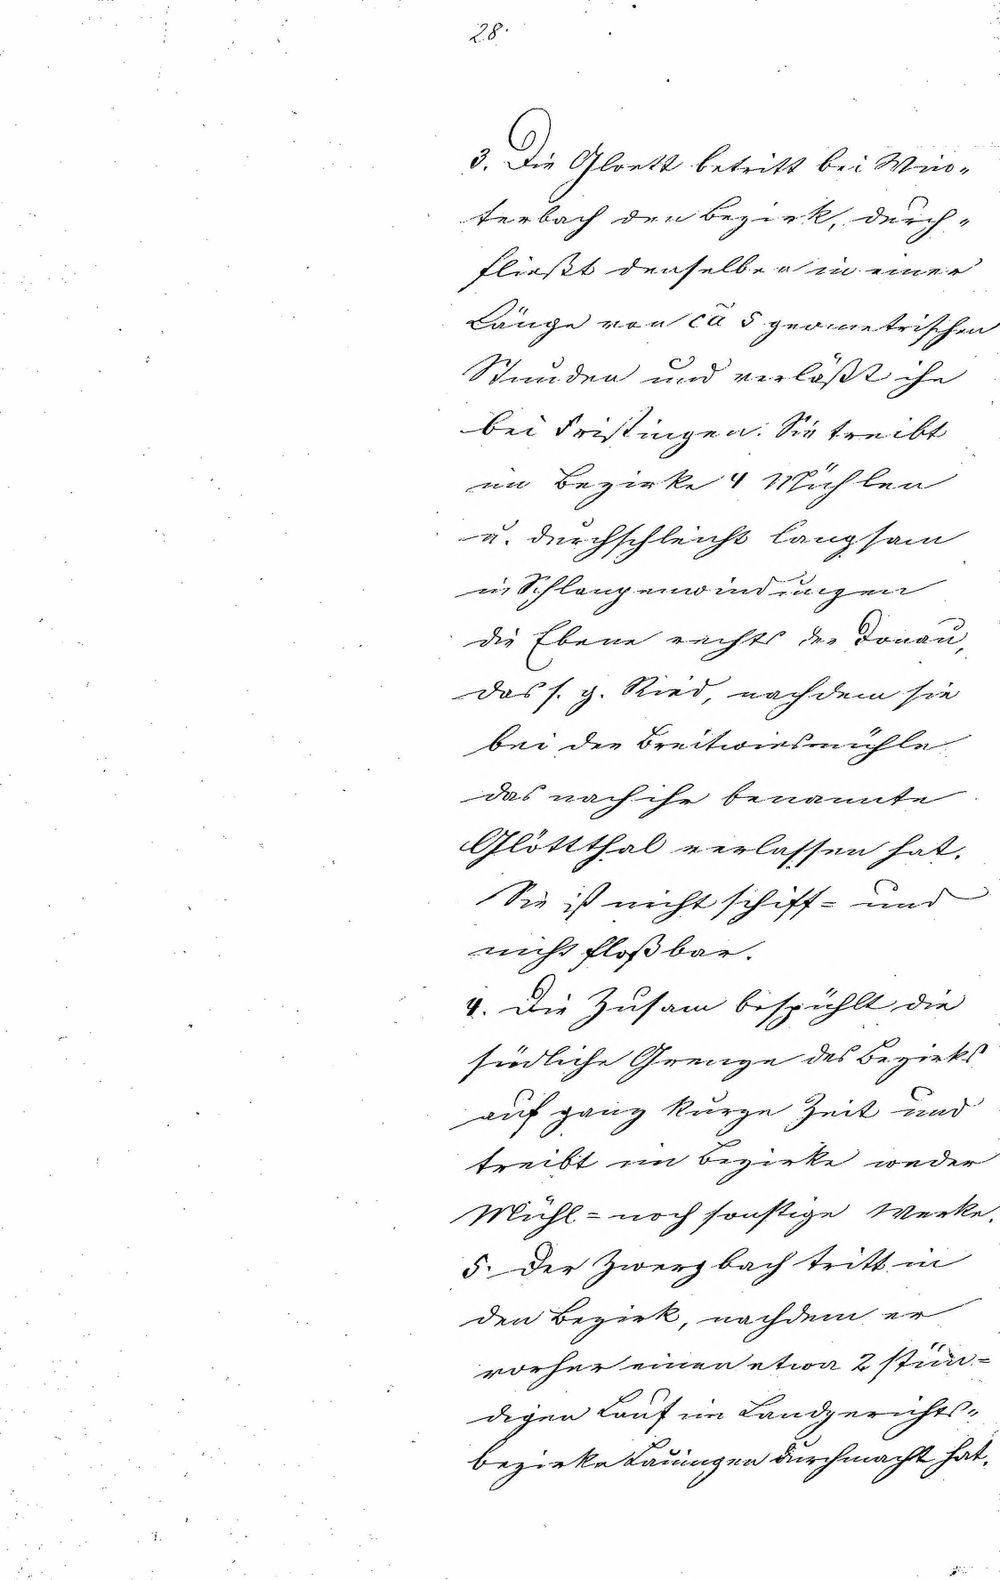 28.
3. Die Gloett betritt bei Win-
terbach den Bezirk, durch-
fließt denselben in einer
Länge von ca 5 geometrischen
Stunden und verläßt ihn
bei Fristingen. Sie treibt
im Bezirke 4 Mühlen
u. durchschleicht langsam
in Schlangenwindungen
die Ebene rechts der Donau,
das s. g. Ried, nachdem sie
bei der Breitwiesmühle
das nach ihr benannte
Glöttthal verlassen hat.
Sie ist nicht schiff= und
nicht floßbar.
4. Die Zusam bespühlt die
südliche Grenze des Bezirks
auf ganz kurze Zeit und
treibt im Bezirke weder
Mühl= noch sonstige Werke.
5. Der Zwergbach tritt in
den Bezirk, nachdem er
vorher einen etwa 2 stün=
digen Lauf im Landgerichts=
bezirke Lauingen durchmacht hat.